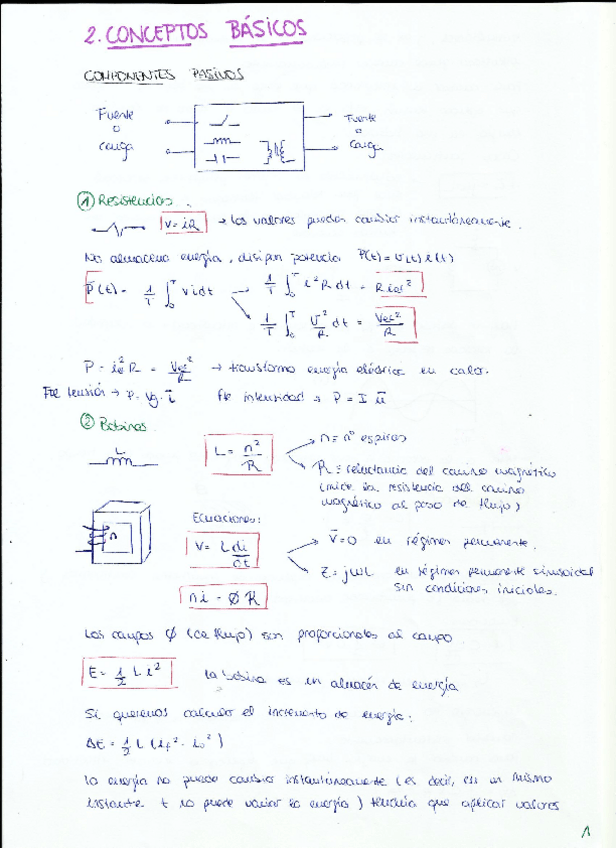 2. CONCEPTOS BÁSICOS
COMPONENTES PASIVOS
Fuente o carga
Fuente o carga
① Resistencias.
V = iR → los valores pueden cambiar instantáneamente.
No almacena energía, disipan potencia P(t) = v(t) i(t)
P̄(t) = 1/T ∫₀ᵀ v i dt → 1/T ∫₀ᵀ i² R dt = R ief²
→ 1/T ∫₀ᵀ v²/R dt = Vef²/R
P = ief² R = Vef²/R → transforma energía eléctrica en calor.
Fte tensión → P = Vg · ī Fte intensidad → P = I ū
② Bobinas
L
L = n²/R
n = nº espiras
R = reluctancia del camino magnético
(mide la resistencia del camino
magnético al paso de flujo)
n
Ecuaciones:
V = L di/dt
V̄ = 0 en régimen permanente.
Z = jωL en régimen permanente sinusoidal
sin condiciones iniciales.
n i = Ø R
Los campos Ø (de flujo) son proporcionales al campo
E = 1/2 L i² la bobina es un almacén de energía
Si queremos calcular el incremento de energía:
ΔE = 1/2 L (if² - io²)
la energía no puede cambiar instantáneamente (es decir, en un mismo
instante t no puede variar la energía) tendría que aplicar valores
1